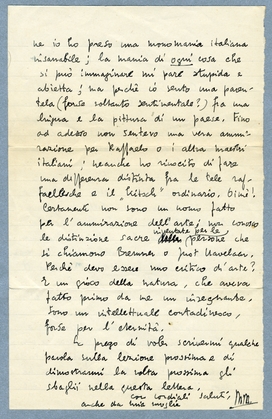 ne io ho preso una monomania italiana
insanabile; la mania di ogni cosa che
si può immaginare mi pare stupida e
abietta; ma perchè io sento una paren-
tela (forse soltanto sentimentale?) fra una
lingua e la pittura di un paese. Fino
ad adesso non sentevo una vera ammi-
razione per Raffaelo o i altra maestri
italiani; neanche ho riuscito di fare
una differenza distinta fra le tele raf-
faellesche e il "kitsch" ordinario. Dimè!
Certamente non sono un uomo fatto
per l'ammirazione dell'arte; non conosco
le distinzione sacre inventate per le persone che
si chiamono Bremmer o Just Havelaar.
Perchè devo essere uno critico di arte?
È un gioco della natura, che aveva
fatto primo da me un insegnante.
Sono un intellettuale contadinesco,
forse per l'eternità.
La prego di voler scrivermi qualche
parola sulla lezione prossima e di
dimostrarmi la volta prossima gli
sbagli nella questa lettera,
con cordiali saluti,
anche da mia moglie